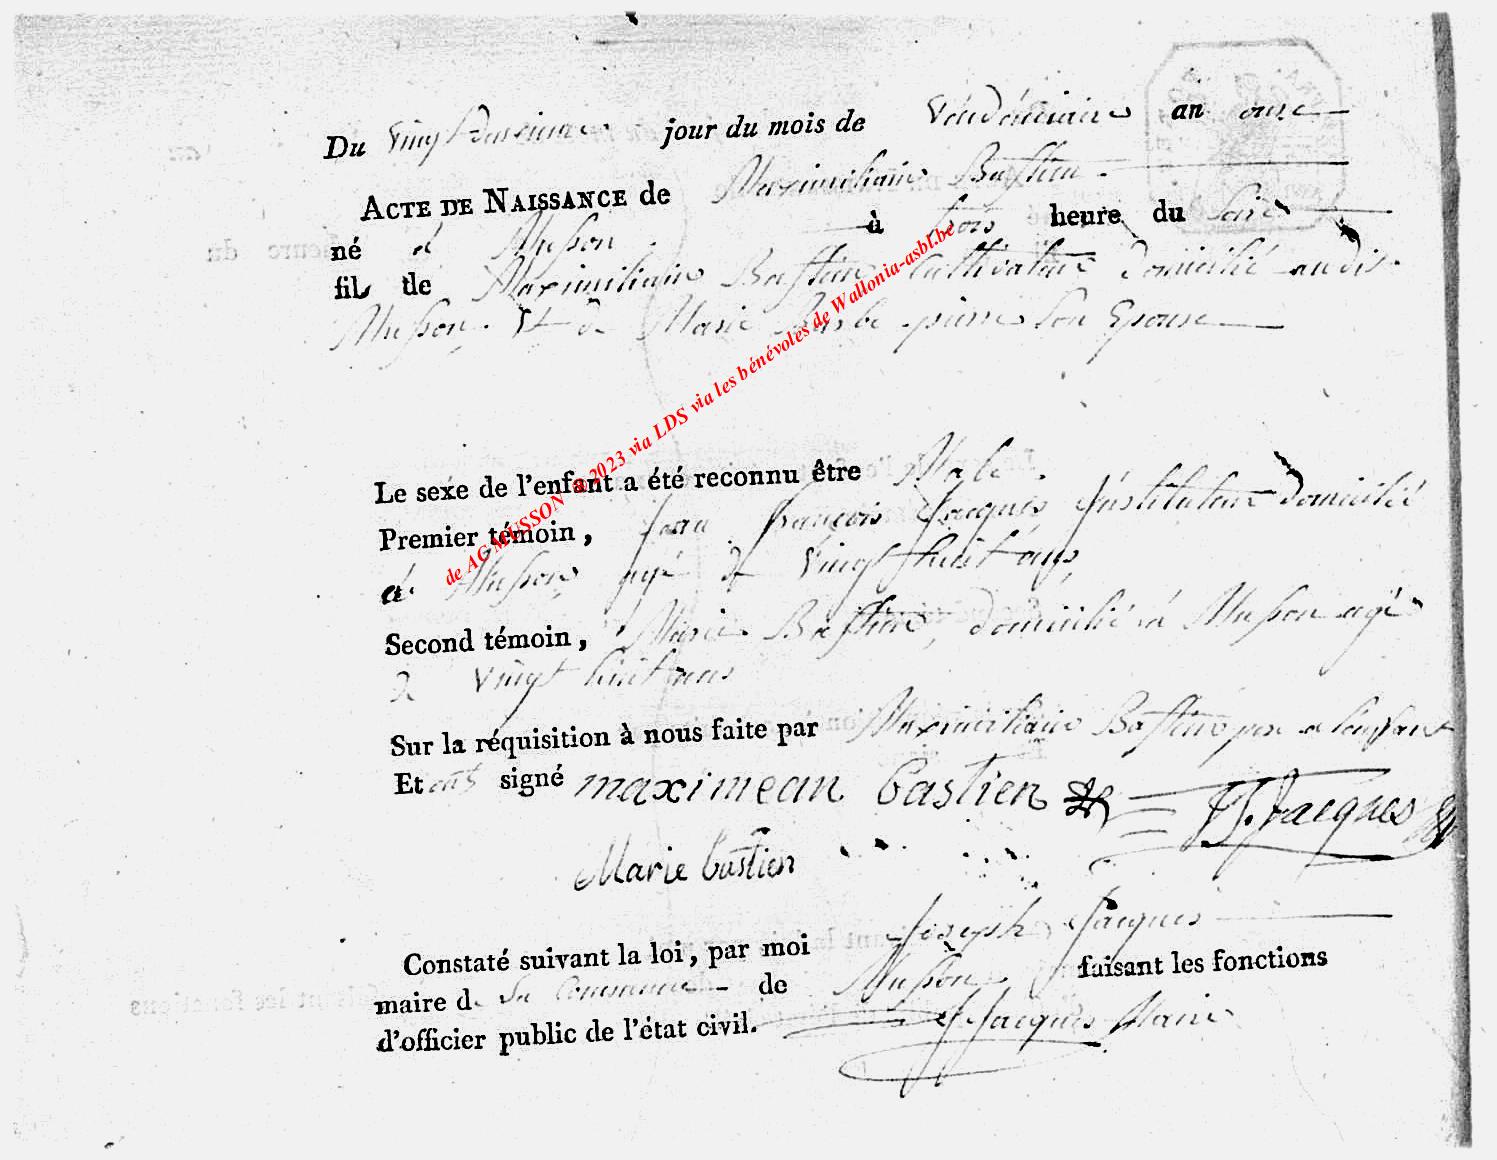 Du Vingt deuxieme jour du mois de Vendémiaire an onze
ACTE DE NAISSANCE de Maximiliain Bastien
né à Musson à trois heure du soir
fils de Maximiliain Bastien Cultivateur domicilié audit
Musson. Et de Marie Barbe pierre son Epouse
Le sexe de l'enfant a été reconnu être Male.
Premier témoin, Jean françois Jacques, Instituteur domicilié
à Musson agé de Vingt huit ans,
Second témoin, Marie Bastien, domicilié à Musson agé
de Vingt huit ans
Sur la réquisition à nous faite par Maximiliain Bastien pere de lenfant
Et ont signé maximean bastien JF. Jacques
Marie bastien
Constaté suivant la loi, par moi Joseph Jacques
maire de la Commune de Musson faisant les fonctions
d'officier public de l'état civil. J Jacques Maire
de AG MUSSON @ 2023 via LDS via les bénévoles de Wallonia-asbl.be